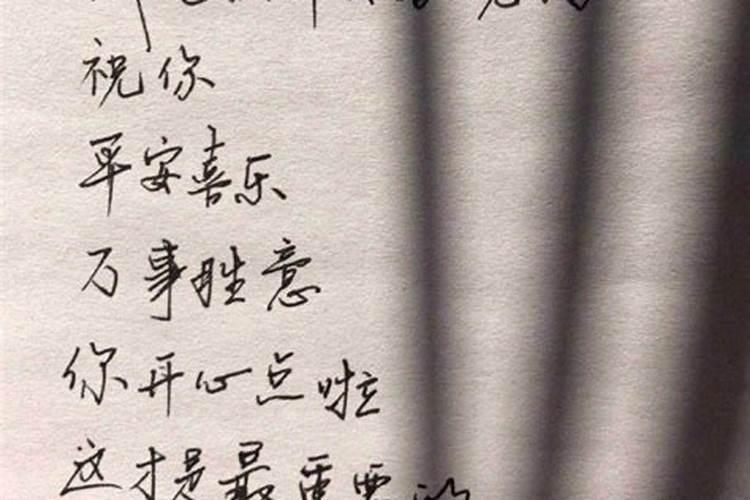 祝你
平安喜乐
万事胜意
你开心点啦
这才是最重要的